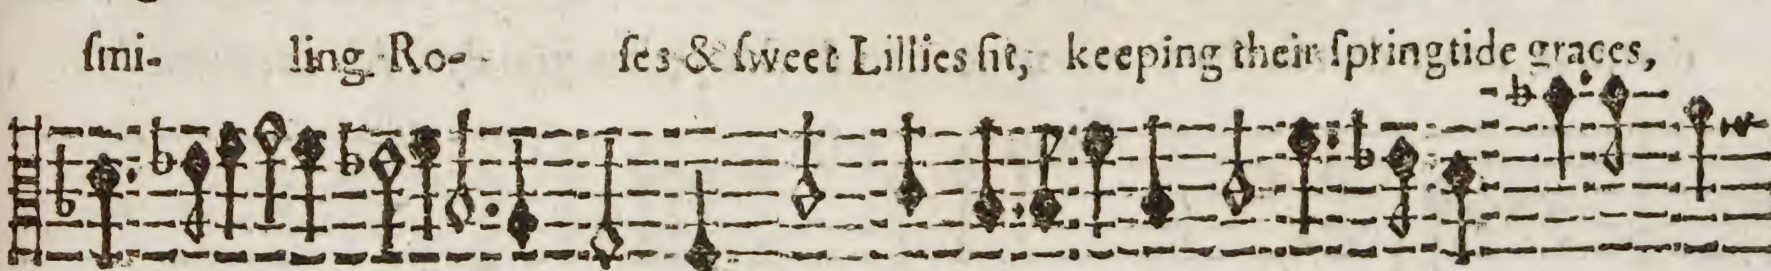 ſmi- ling Ro- ſes & ſweet Lillies ſit, keeping their ſpringtide graces,